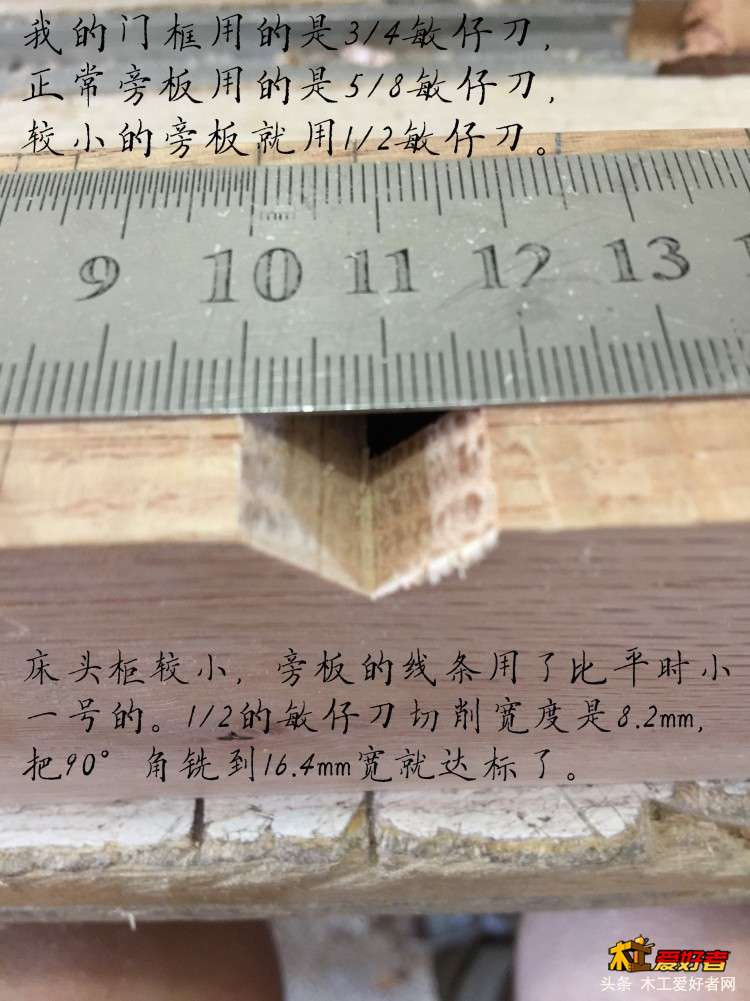 我的门框用的是3/4敏仔刀,
正常旁板用的是5/8敏仔刀,
较小的旁板就用1/2敏仔刀。
9 10 11 12 13
床头柜较小, 旁板的线条用了比平时小
一号的。1/2的敏仔刀切削宽度是8.2mm,
把90°角铣到16.4mm宽就达标了。
木工爱好者
头条 木工爱好者网